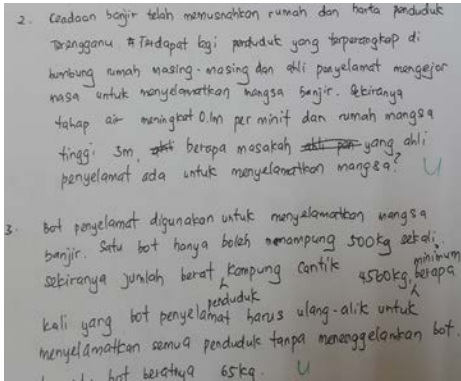 2. Keadaan banjir telah memusnahkan rumah dan harta penduduk
Terengganu. Terdapat lagi penduduk yang terperangkap di
bumbung rumah masing-masing dan ahli penyelamat mengejar
masa untuk menyelamatkan mangsa banjir. Sekiranya
tahap air meningkat 0.1m per minit dan rumah mangsa
tinggi 3m, berapa masakah yang ahli
penyelamat ada untuk menyelamatkan mangsa?
3. Bot penyelamat digunakan untuk menyelamatkan mangsa
banjir. Satu bot hanya boleh menampung 500kg sekali.
Sekiranya jumlah berat penduduk Kampung Cantik 4560kg, berapa minimum
kali yang bot penyelamat harus ulang-alik untuk
menyelamatkan semua penduduk tanpa menenggelamkan bot.
bot beratnya 65kg.